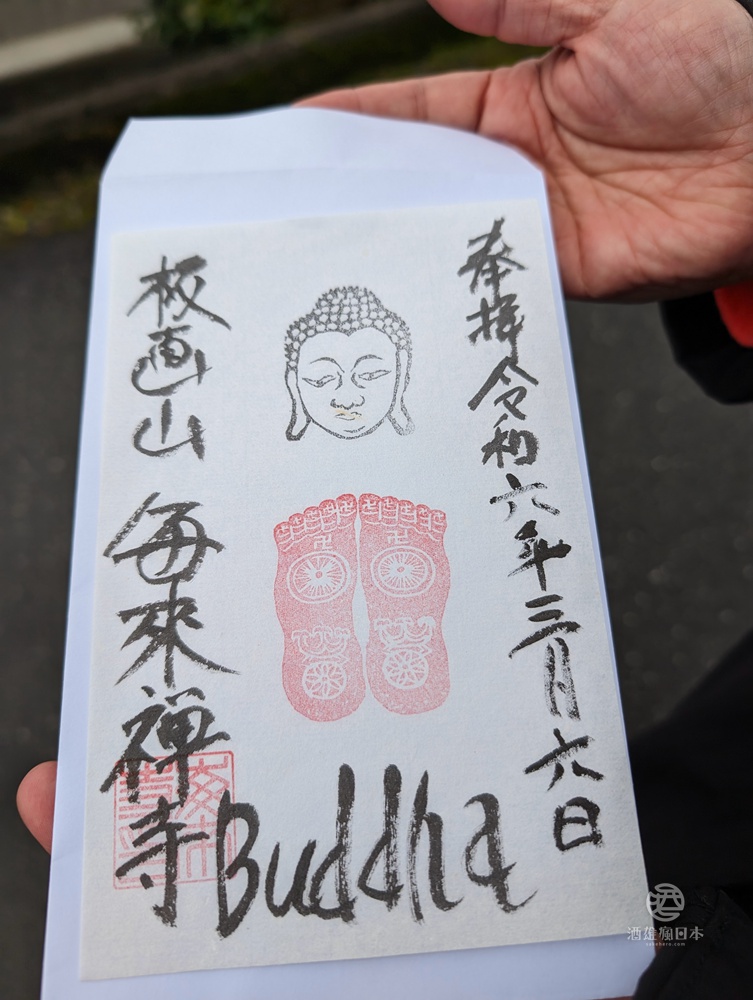 奉拝 令和六年三月六日
板画山 毎來禅寺
Buddha
酒雄瘋日本
sakehero.com